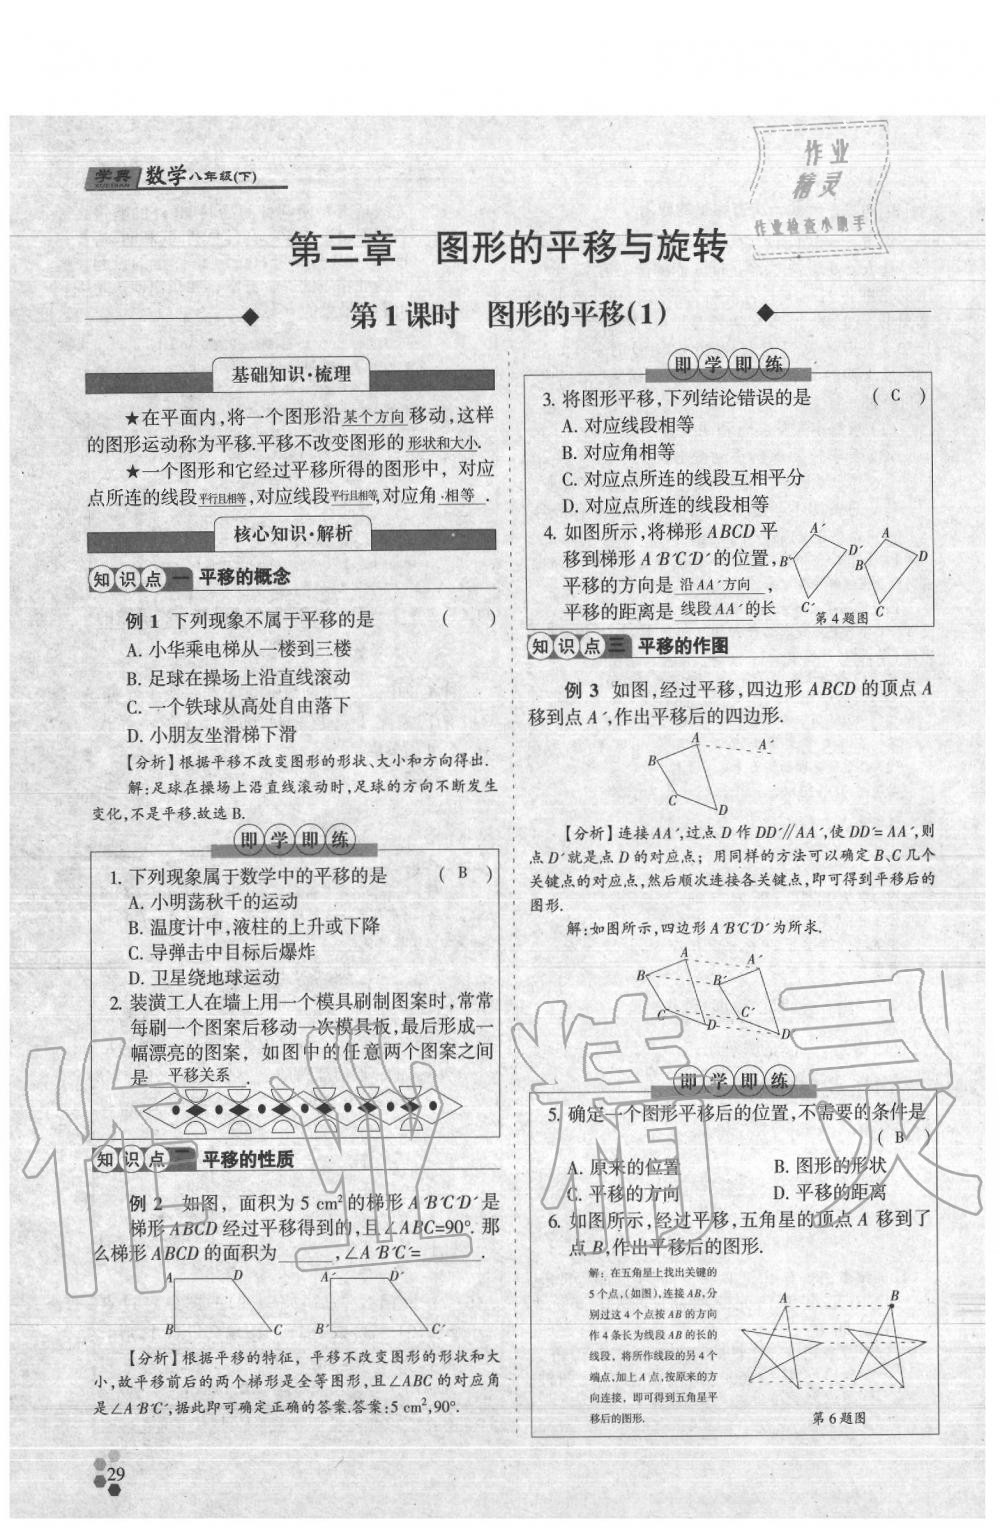 学典 数学八年级(下)
XUEDIAN
作业
精灵
作业检查小助手
第三章 图形的平移与旋转
第1课时 图形的平移(1)
基础知识·梳理
★在平面内,将一个图形沿某个方向移动,这样
的图形运动称为平移.平移不改变图形的形状和大小.
★一个图形和它经过平移所得的图形中,对应
点所连的线段平行且相等,对应线段平行且相等,对应角相等.
核心知识·解析
知识点一 平移的概念
例1 下列现象不属于平移的是 ( )
A. 小华乘电梯从一楼到三楼
B. 足球在操场上沿直线滚动
C. 一个铁球从高处自由落下
D. 小朋友坐滑梯下滑
【分析】根据平移不改变图形的形状、大小和方向得出.
解:足球在操场上沿直线滚动时,足球的方向不断发生
变化,不是平移.故选B.
即学即练
1. 下列现象属于数学中的平移的是 ( B )
A. 小明荡秋千的运动
B. 温度计中,液柱的上升或下降
C. 导弹击中目标后爆炸
D. 卫星绕地球运动
2. 装潢工人在墙上用一个模具刷制图案时,常常
每刷一个图案后移动一次模具板,最后形成一
幅漂亮的图案,如图中的任意两个图案之间
是 平移关系 .
知识点二 平移的性质
例2 如图,面积为5 cm²的梯形A′B′C′D′是
梯形ABCD经过平移得到的,且∠ABC=90°.那
么梯形ABCD的面积为 ,∠A′B′C′= .
A D A′ D′
B C B′ C′
【分析】根据平移的特征,平移不改变图形的形状和大
小,故平移前后的两个梯形是全等图形,且∠ABC的对应角
是∠A′B′C′,据此即可确定正确的答案.答案:5 cm²,90°.
29
即学即练
3. 将图形平移,下列结论错误的是 ( C )
A. 对应线段相等
B. 对应角相等
C. 对应点所连的线段互相平分
D. 对应点所连的线段相等
4. 如图所示,将梯形ABCD平
移到梯形A′B′C′D′的位置,
平移的方向是 沿AA′方向 ,
平移的距离是 线段AA′的长
A′ D′ B′ C′ A D B C
第4题图
知识点三 平移的作图
例3 如图,经过平移,四边形ABCD的顶点A
移到点A′,作出平移后的四边形.
A A′
B
C D
【分析】连接AA′,过点D作DD′∥AA′,使DD′=AA′,则
点D′就是点D的对应点;用同样的方法可以确定B、C几个
关键点的对应点,然后顺次连接各关键点,即可得到平移后的
图形.
解:如图所示,四边形A′B′C′D′为所求.
A A′
B B′
C C′
D D′
即学即练
5. 确定一个图形平移后的位置,不需要的条件是
( B )
A. 原来的位置 B. 图形的形状
C. 平移的方向 D. 平移的距离
6. 如图所示,经过平移,五角星的顶点A移到了
点B,作出平移后的图形.
解:在五角星上找出关键的
5个点,(如图),连接AB,分
别过这4个点按AB的方向
作4条长为线段AB的长的
线段,将所作线段的另4个
端点,加上A点,按原来的方
向连接,即可得到五角星平
移后的图形.
A B
第6题图
作业精灵